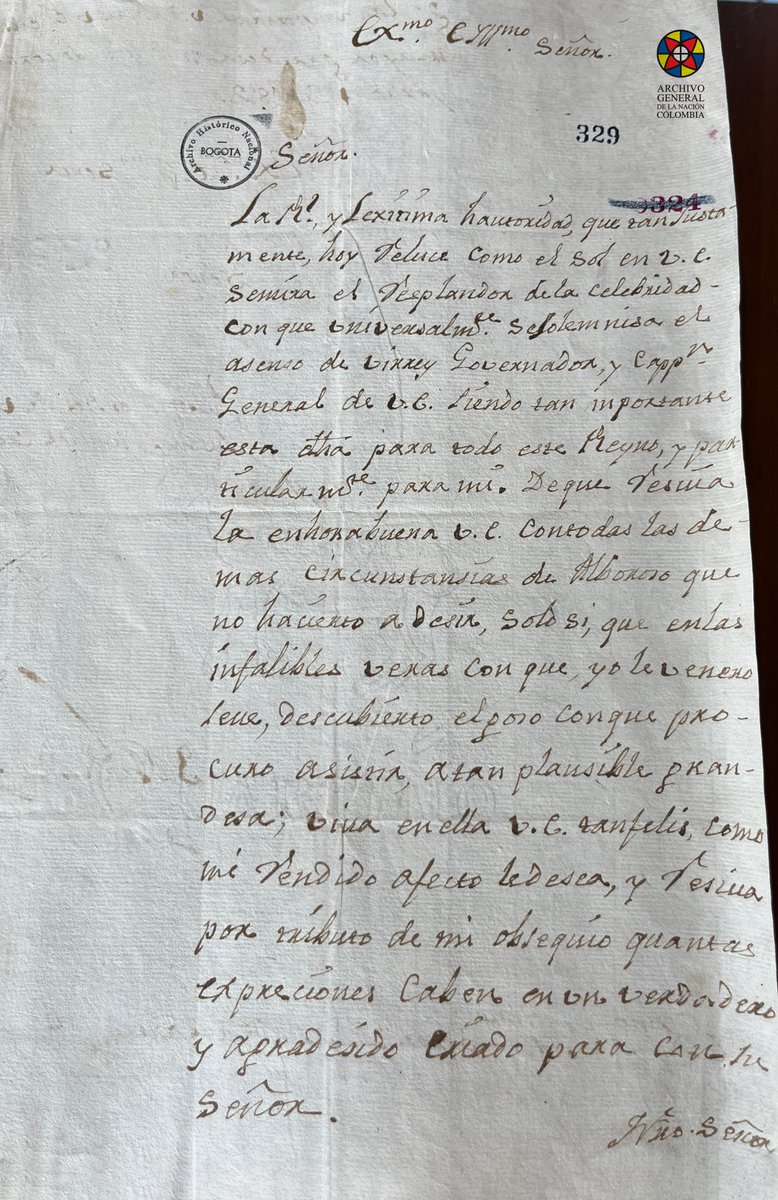 Exmo. e Yllmo. Señor.
ARCHIVO
GENERAL
DE LA NACIÓN
COLOMBIA
329
Archivo Histórico Nacional
BOGOTA
Señor.
324
La Rl. y Lexitima hautoridad, que tan justa-
mente, hoy reluce como el sol en V.E.
semira el resplandor de la celebridad
con que universalmte. sesolemnisa el
asenso de virrey Governador, y Cappn.
General de V.E. siendo tan inportante
esta dha para todo este Reyno, y par-
ticularmte. para mi. De que resiva
la enhorabuena V.E. contodas las de-
mas circunstansias de Alboroso que
no hacierto a desir, solo si, que en las
infalibles veras con que, yo le venero
leve, descubierto el goso conque pro-
curo asistir, atan plausible gran-
desa; viva en ella V.E. tanfelis, como
mi rendido afecto ledesea, y resiva
por tributo de mi obsequio quantas
expreciones caben en un verdadero
y agradesido criado para con su
Señor.
Señor